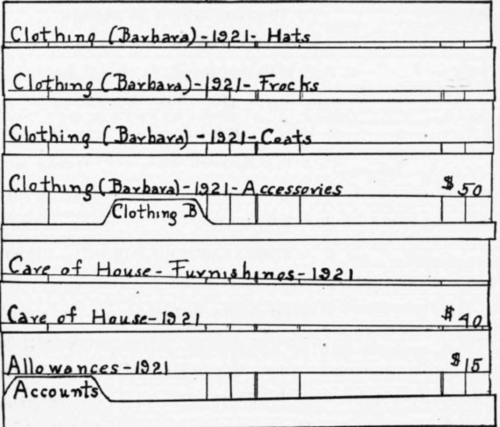 Clothing (Barbara)-1921- Hats
Clothing (Barbara)-1921- Frocks
Clothing (Barbara) -1921-Coats
Clothing (Barbara)-1921-Accessories $50
Clothing B
Care of House-Furnishings-1921
Care of House-1921 $40
Allowances-1921 $15
Accounts